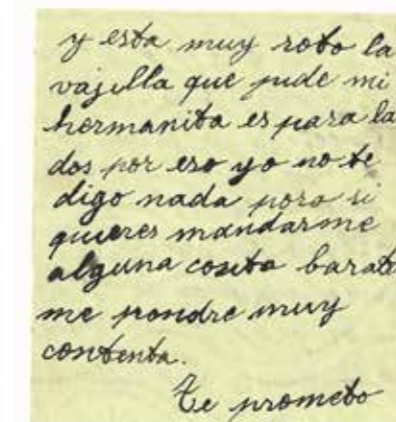 y esta muy roto la
vajilla que pide mi
hermanita es para la
dos por eso yo no te
digo nada poro si
quieres mandarme
alguna cosita barata
me pondre muy
contenta.
Te prometo